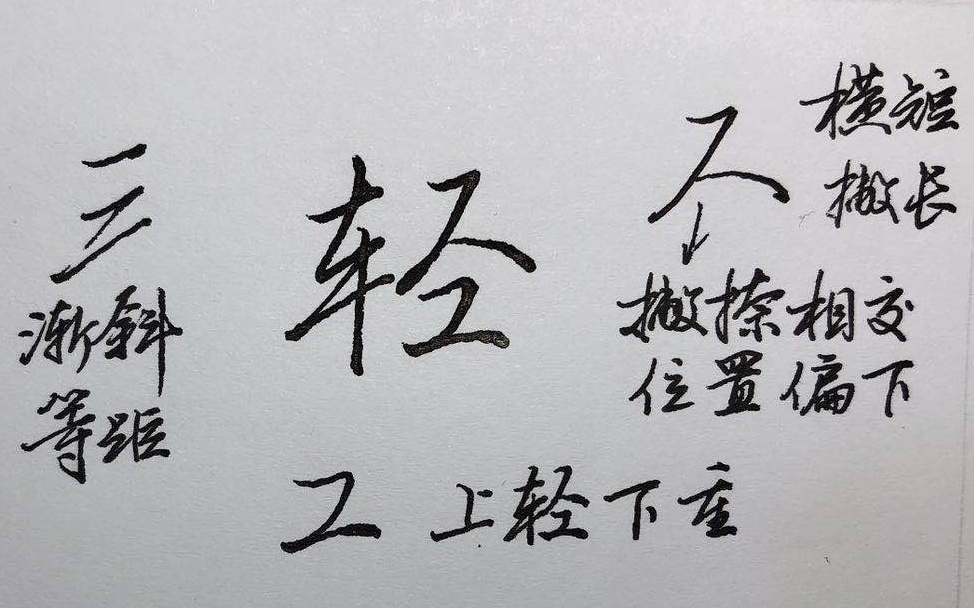 三
渐斜
等距
轻
横短
撇长
撇捺相交
位置偏下
工 上轻下重